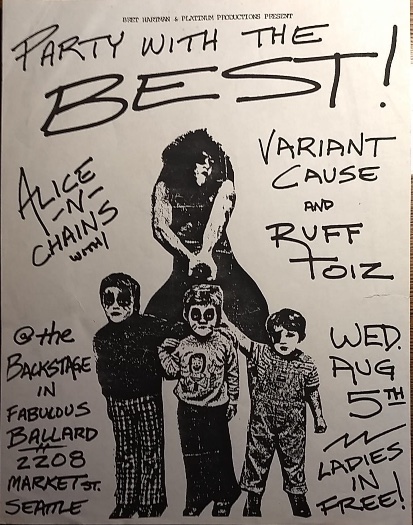 BRET HARTMAN & PLATINUM PRODUCTIONS PRESENT
PARTY WITH THE
BEST!
ALICE
-N-
CHAINS
WITH
VARIANT
CAUSE
AND
RUFF
TOIZ
@ the
BACKSTAGE
IN
FABULOUS
BALLARD
2208
MARKET ST.
SEATTLE
WED.
AUG
5TH
LADIES
IN
FREE!